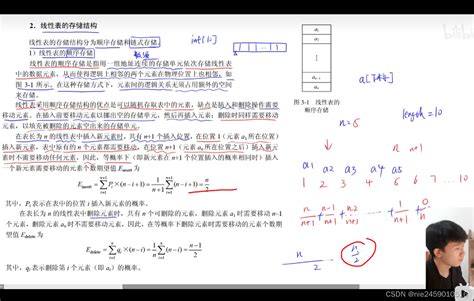 2. 线性表的存储结构
线性表的存储结构分为顺序存储和链式存储。
1) 线性表的顺序存储
线性表的顺序存储是指用一组地址连续的存储单元依次存储线性表
中的数据元素，从而使得逻辑上相邻的两个元素在物理位置上也相邻，如
图 3-1 所示。在这种存储方式下，元素间的逻辑关系无须占用额外的空间
来存储。
线性表采用顺序存储结构的优点是可以随机存取表中的元素，缺点是插入和删除操作需要
移动元素。在插入前要移动元素以挪出空的存储单元，然后再插入元素；删除时同样需要移动
元素，以填充被删除的元素空出来的存储单元。
在表长为 n 的线性表中插入新元素时，共有 n+1 个插入位置，在位置 1（元素 a₁ 所在位置）
插入新元素，表中原有的 n 个元素都需要移动，在位置 n+1（元素 aₙ 所在位置之后）插入新元
素时不需要移动任何元素，因此，等概率下（即新元素在 n+1 个位置插入的概率相同时）插入
一个新元素需要移动的元素个数期望值 E_insert 为
E_insert = Σ P_i × (n−i+1) = 1/(n+1) Σ (n−i+1) = n/2
其中，P_i 表示在表中的位置 i 插入新元素的概率。
在表长为 n 的线性表中删除元素时，共有 n 个可删除的元素，删除元素 a₁ 时需要移动 n−1
个元素，删除元素 aₙ 时不需要移动元素，因此，等概率下删除元素时需要移动的元素个数期
望值 E_delete 为
E_delete = Σ q_i × (n−i) = 1/n Σ (n−i) = (n−1)/2
其中，q_i 表示删除第 i 个元素（即 a_i）的概率。
int[10]
a₁
a₂
aₙ
图 3-1 线性表的
顺序存储
a[下标]
length=10
n=5
n n+1
a1 a2 a3 a4 a5
1 2 3 4 5 6 7 ... 10
n/2
CSDN @nie245901